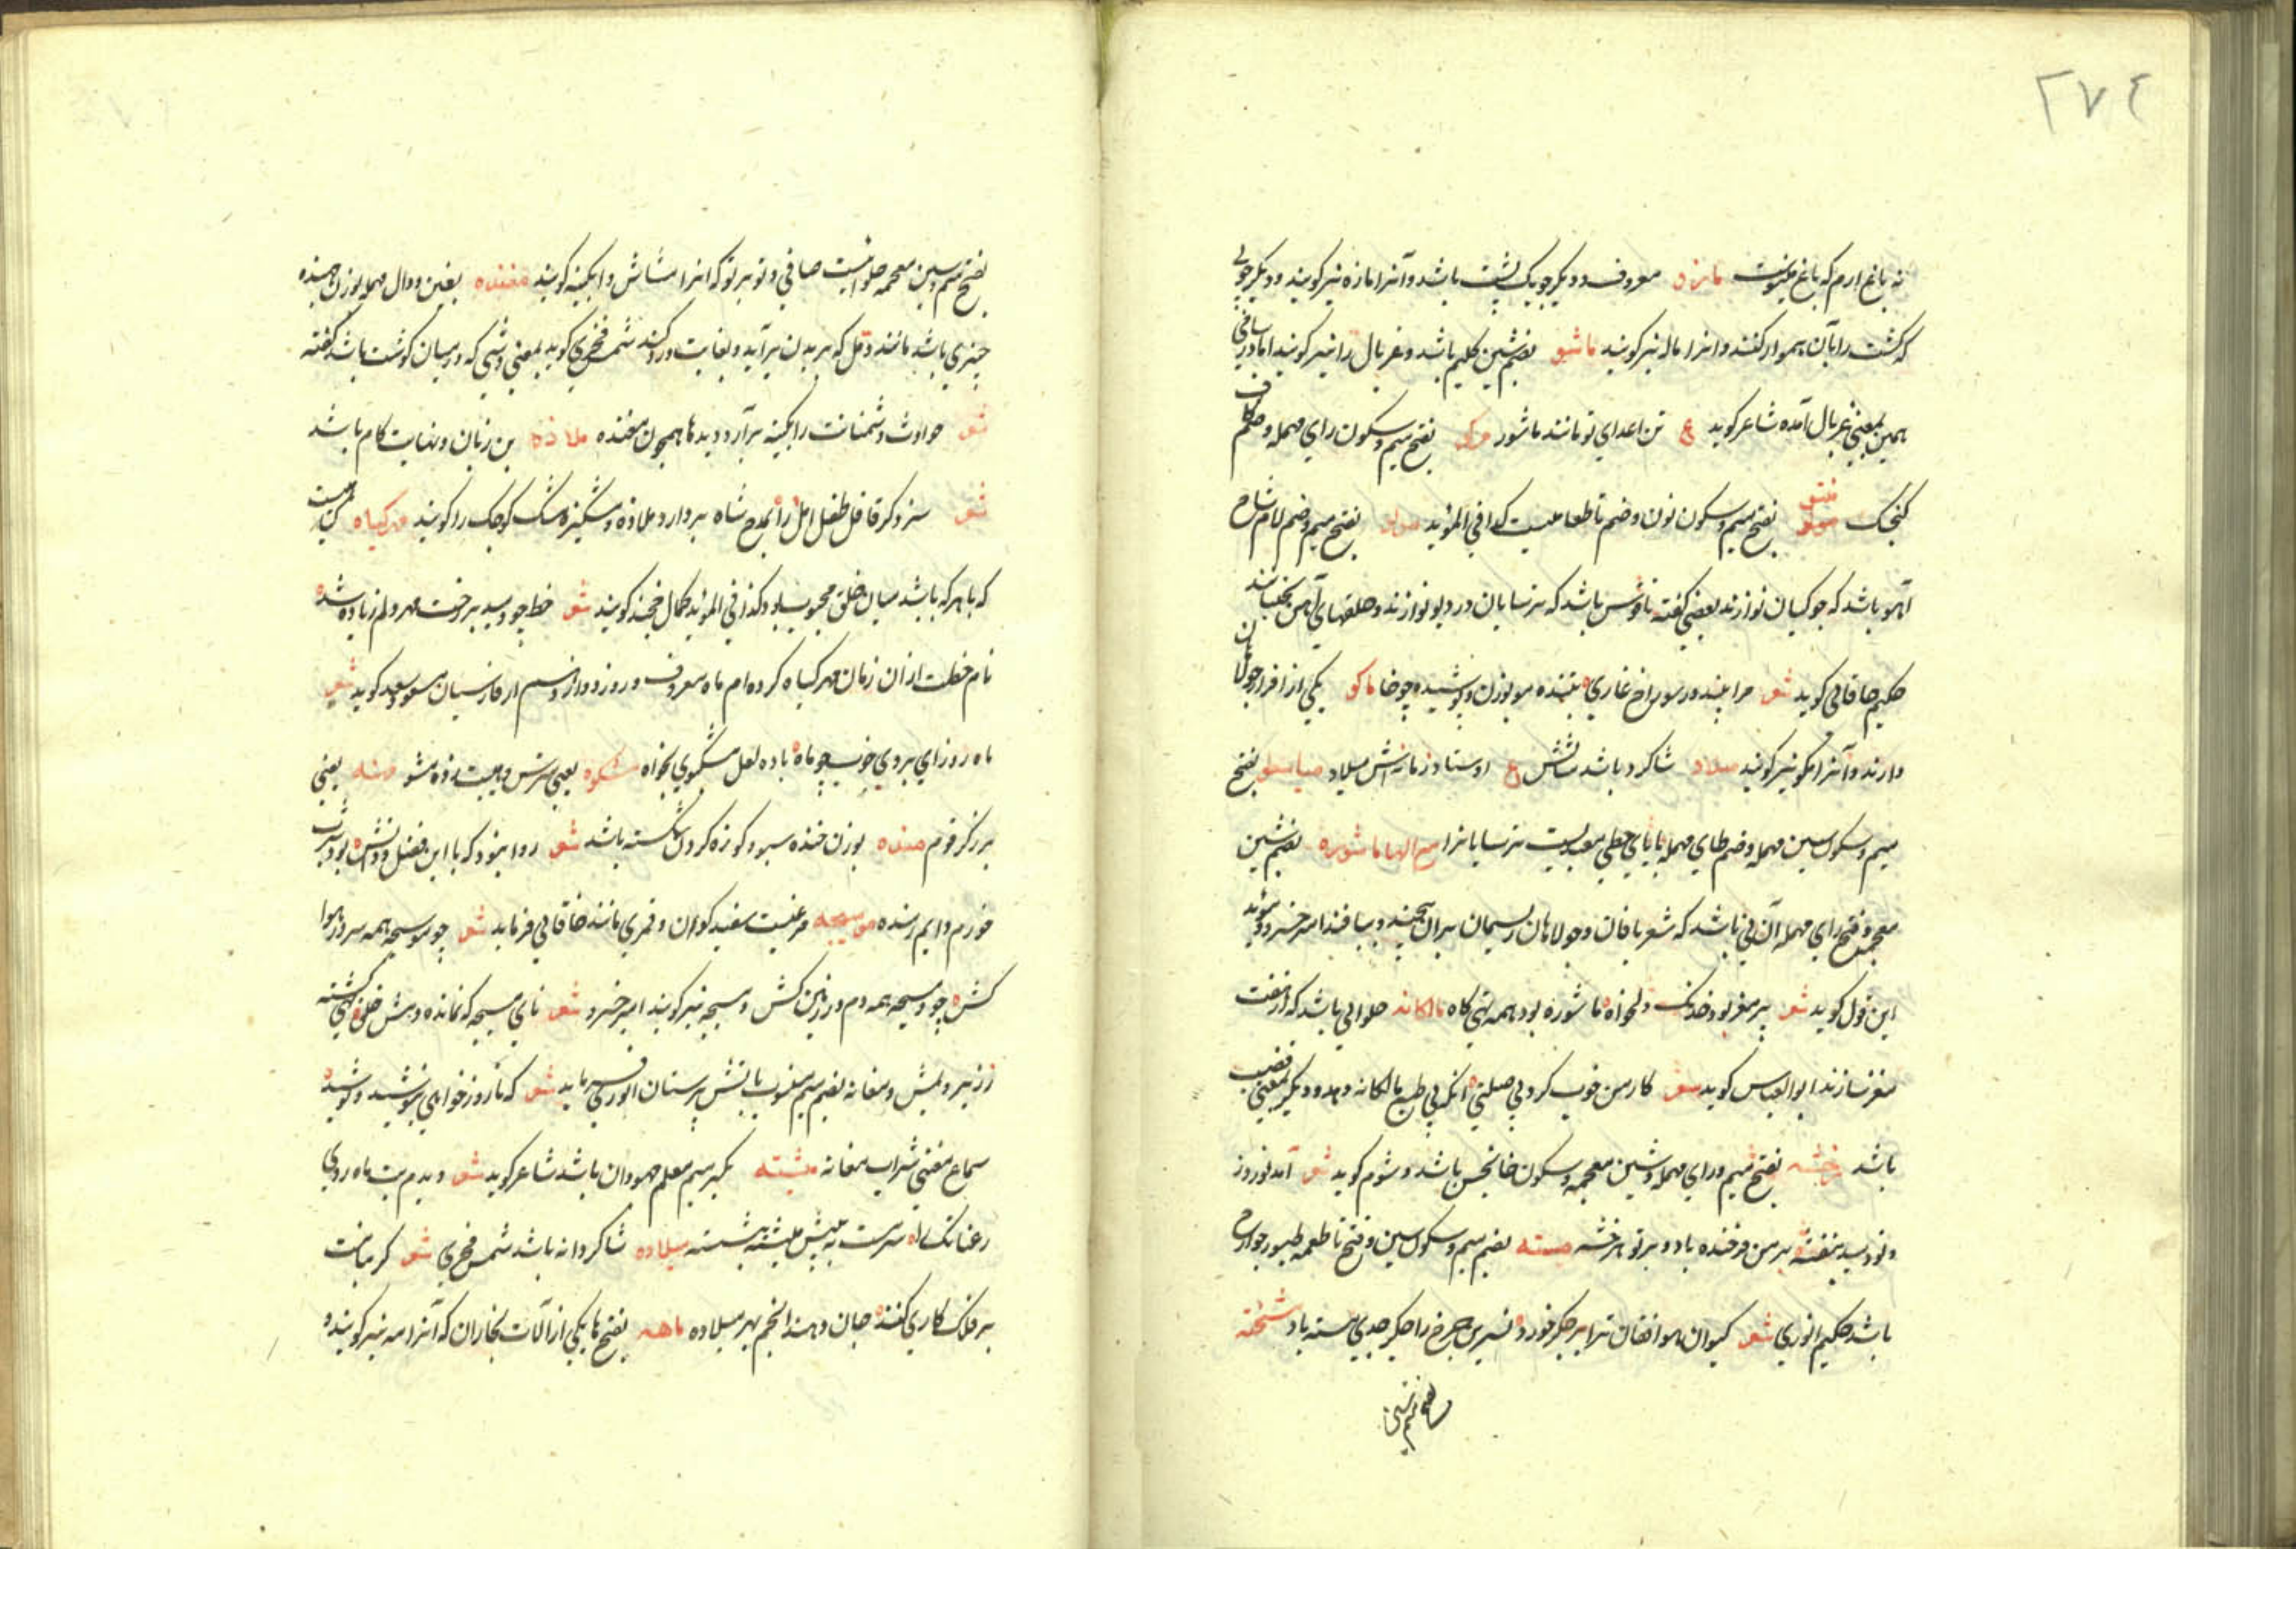 ٢٧٤
نه باغ ارم که باغ مینوست مازو معروف و دیگر چوبک پشت باشد و آنرا مازه نیز گویند و دیگر چوبی
که کشت را بآن هموار کنند و انرا ماله نیز گویند ماشو بضم شین کلیم باشد و غربال را نیز گویند اما در سامی
همین بمعنی غربال آمده شاعر گوید ع تن اعدای تو مانند ماشو مرکو بفتح میم و سکون رای مهمله و ضم کاف
کنجک منتو بفتح میم و سکون نون و ضم تا طعامیست کذا فی المؤید مولو بفتح میم و ضم لام شاخ
آهو باشد که جوکیان نوازند بعضی گفته ناقوس باشد که ترسایان در دیر نوازند و حلقهای آهن بجنبانند
حکیم خاقانی گوید شعر مرا بینند در سوراخ غاری شده مولوزن و پوشیده چوخا ماکو یکی از افزار جولاهان
دارند و آنرا مکو نیز گویند میلاد شاگرد باشد ع اوستاد زمانه اش میلاد میاسطو بفتح
میم و سکون سین مهمله و ضم طای مهمله با یای حطی معبدیست ترسایانرا مع الها ماشوره بضم شین
معجمه و فتح رای مهمله آن نی باشد که شعربافان و جولاهان ریسمان بران پیچند و ببافند امیر خسرو مؤید
این قول گوید شعر پر مغز بود خدنگ دلخواه ماشوره بود همه تهی کاه مالکانه حلوایی باشد که از هفت
مغز سازند ابو العباس گوید شعر کار من خوب کرد بی صلتی انک بی طمع مالکانه دهد و دیگر بمعنی قضیب
باشد مرخشه بفتح میم و رای مهمله و شین معجمه و سکون خا نحس باشد و شوم گوید شعر آمد نوروز
و نو دمید بنفشه بر من فرخنده باد و بر تو مرخشه مسته بضم میم و سکون سین و فتح تا طعمه طیور جوارح
باشد حکیم انوری شعر کیوان موافقان ترا بر جگر خورد نسرین چرخ را جگر جدی مسته باد مشخته
بفتح میم و شین معجمه حلوائیست صافی و تو بر تو که انرا مشاش و ابگینه گویند مغنده بغین و دال مهمله بوزن جهنده
چیزی باشد مانند دمل که بر بدن برآید و بغایت درد کند شمس فخری گوید بمعنی دشپی که در میان گوشت باشد گفته
شعر حوادث دشمنانت را بگینه برآرد دیدها همچون مغنده ملاذه بن زبان و نهایت کام باشد
شعر سزد کر قافل طفل امل را بمدح شاه بردارد ملاذه و مشکیزه مشک کوچک را گویند مهر گیاه گیاهیست
که با هر که باشد میان خلق محبوب بود کذا فی المؤید کمال خجند گوید شعر خط چو دمید بر رخت مهر دلم زیاده شد
نام خطت ازان زمان مهر گیاه کرده ام ماه معروف و روز دوازدهم از فارسیان مسعود سعد گوید شعر
ماه روز ای بروی خوب چو ماه باده لعل مشکبوی بخواه مشکوه یعنی مترس و هیبت زده مشو مسه یعنی
بزرگر قوم منده بوزن خنده سبو و کوزه گردن شکسته باشد شعر روا بود که با این فضل و دانش بود شربت
خورم دایم ز منده موسیجه مرغیست سفید گون و قمری مانند خاقانی فرماید شعر چو موسیجه همه سر در هوا
کش چو دمسیجه همه دم در زمین کش و مسیجه نیز گویند امیر خسرو شعر نای مسیجه که نمانده دمش خلق تهی گشته
ز زیر و بمش و مغانه بضم میم منسوب باتش پرستان انوری فرماید شعر که تا روز خواهی نوشید و کوشید
سماع مغنی شراب مغانه میشته بکسر میم معلم جهودان باشد شاعر گوید شعر دیدم بت ماه روی
رعنا نک له سرست به پیش میشته بنشسته میلاده شاگردانه باشد شمس فخری شعر کر بیابت
بر فلک کاری کند جان دهد انجم بهر میلاده ماهه بفتح ها یکی از آلات نجاران که آنرا مته نیز گویند و